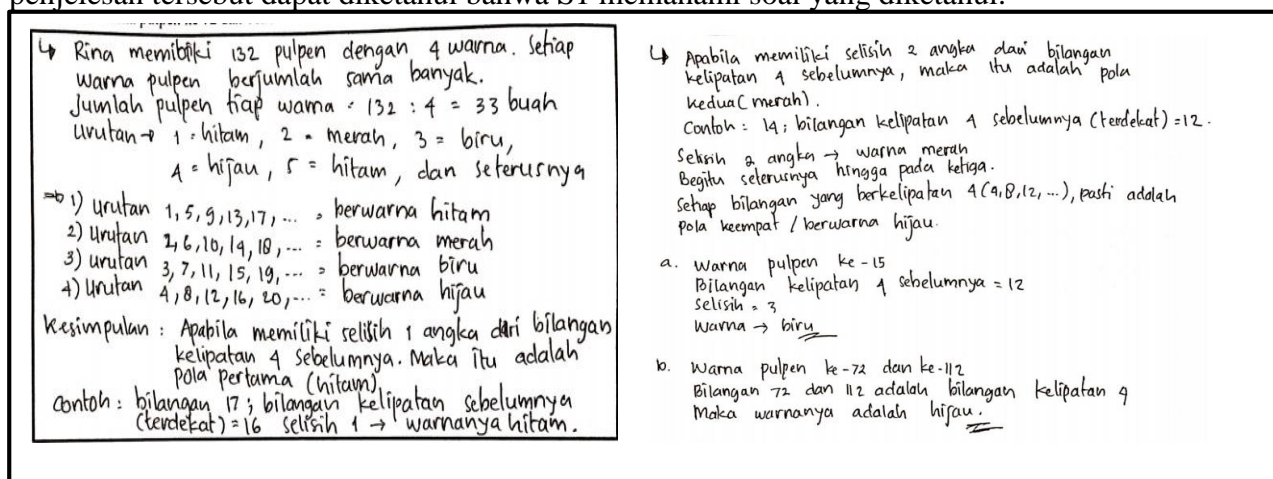 penjelesan tersebut dapat diketahui bahwa S1 memahami soal yang diketahui.
↳ Rina memiliki 132 pulpen dengan 4 warna. Setiap
warna pulpen berjumlah sama banyak.
Jumlah pulpen tiap warna = 132 : 4 = 33 buah
Urutan → 1 = hitam, 2 = merah, 3 = biru,
4 = hijau, 5 = hitam, dan seterusnya
⇒ 1) Urutan 1, 5, 9, 13, 17, ... = berwarna hitam
2) Urutan 2, 6, 10, 14, 18, ... = berwarna merah
3) Urutan 3, 7, 11, 15, 19, ... = berwarna biru
4) Urutan 4, 8, 12, 16, 20, ... = berwarna hijau
Kesimpulan : Apabila memiliki selisih 1 angka dari bilangan
kelipatan 4 sebelumnya. Maka itu adalah
pola pertama (hitam)
Contoh : bilangan 17 ; bilangan kelipatan sebelumnya
(terdekat) = 16 selisih 1 → warnanya hitam.
↳ Apabila memiliki selisih 2 angka dari bilangan
kelipatan 4 sebelumnya, maka itu adalah pola
kedua (merah).
Contoh : 14 ; bilangan kelipatan 4 sebelumnya (terdekat) = 12.
Selisih 2 angka → warna merah
Begitu seterusnya hingga pada ketiga.
Setiap bilangan yang berkelipatan 4 (4, 8, 12, ...), pasti adalah
pola keempat / berwarna hijau.
a. Warna pulpen ke-15
Bilangan kelipatan 4 sebelumnya = 12
Selisih = 3
Warna → biru
b. Warna pulpen ke-72 dan ke-112
Bilangan 72 dan 112 adalah bilangan kelipatan 4
Maka warnanya adalah hijau.